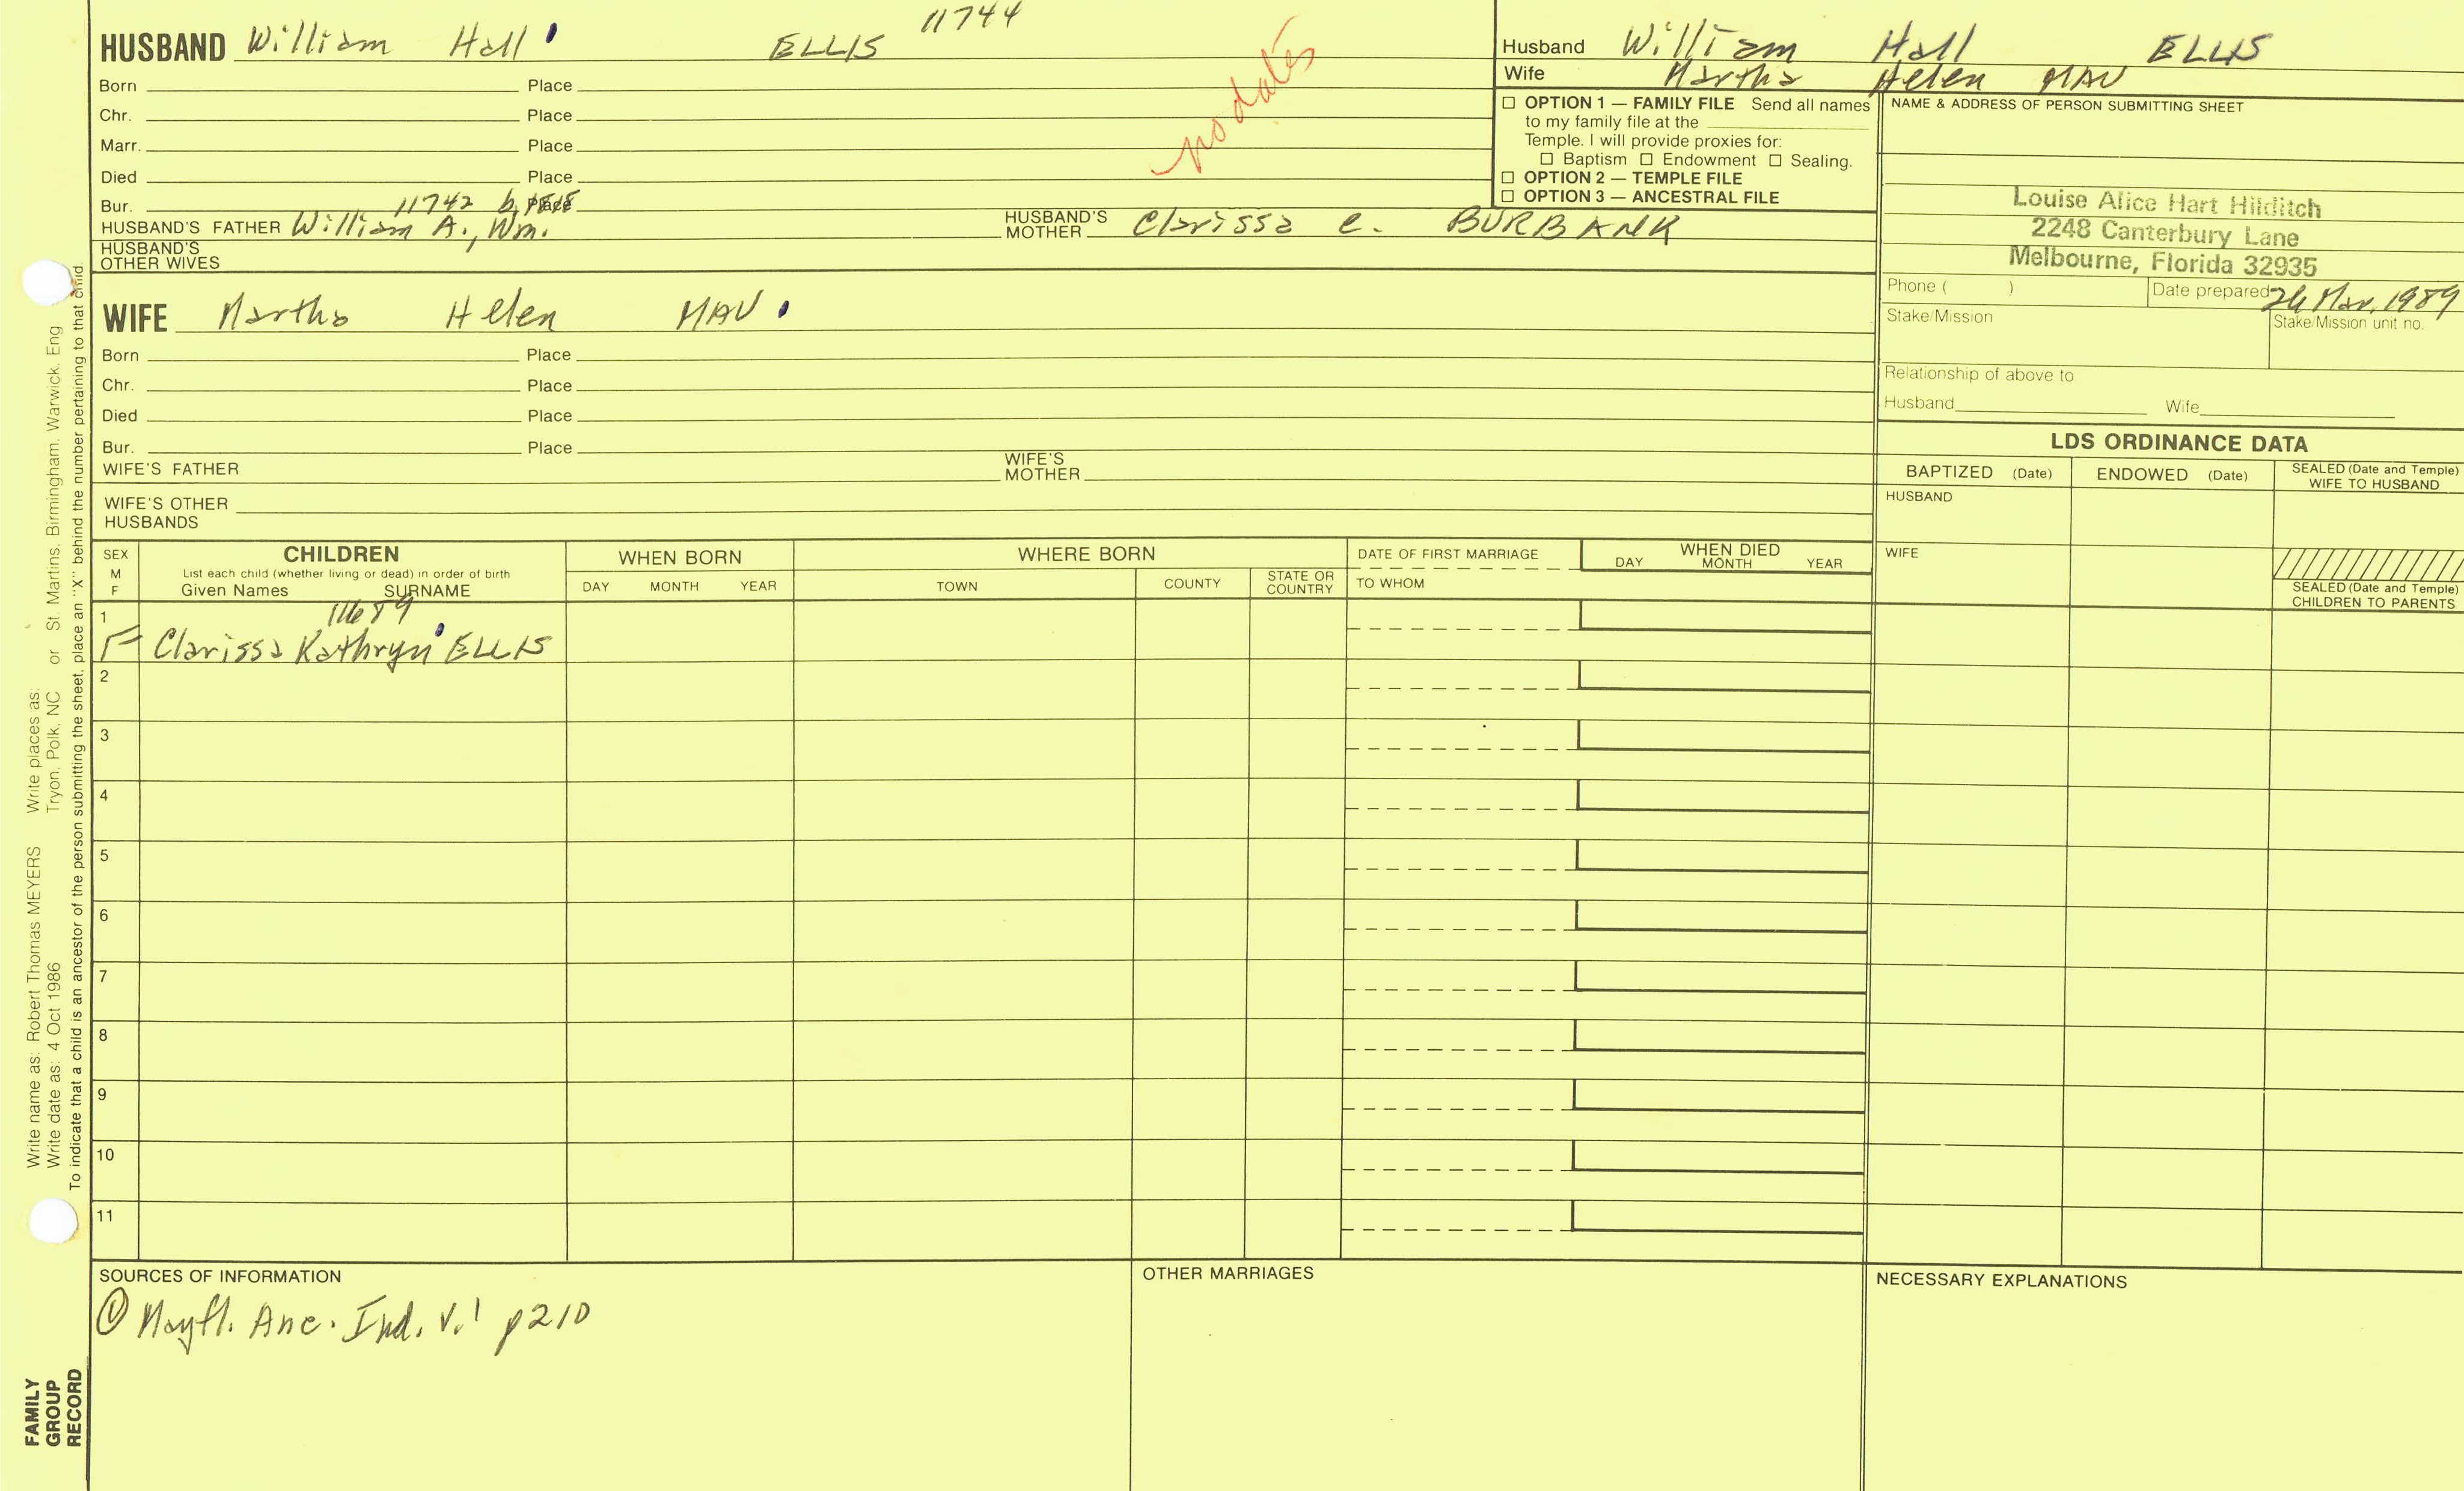 11744
HUSBAND William Hall ELLIS
Born Place
Chr. Place
Marr. Place
Died Place
Bur. Place
11742 b.
HUSBAND'S FATHER William A., Wm. HUSBAND'S MOTHER Clarissa e. BURBANK
HUSBAND'S OTHER WIVES
no dates
WIFE Martha Helen MAV
Born Place
Chr. Place
Died Place
Bur. Place
WIFE'S FATHER WIFE'S MOTHER
WIFE'S OTHER HUSBANDS
Husband William Hall ELLIS
Wife Martha Helen MAV
☐ OPTION 1 — FAMILY FILE Send all names
to my family file at the
Temple. I will provide proxies for:
☐ Baptism ☐ Endowment ☐ Sealing.
☐ OPTION 2 — TEMPLE FILE
☐ OPTION 3 — ANCESTRAL FILE
NAME & ADDRESS OF PERSON SUBMITTING SHEET
Louise Alice Hart Hilditch
2248 Canterbury Lane
Melbourne, Florida 32935
Phone ( ) Date prepared 26 Mar. 1989
Stake/Mission Stake/Mission unit no.
Relationship of above to
Husband Wife
LDS ORDINANCE DATA
BAPTIZED (Date) ENDOWED (Date) SEALED (Date and Temple) WIFE TO HUSBAND
HUSBAND
WIFE
SEALED (Date and Temple)
CHILDREN TO PARENTS
SEX
M
F
CHILDREN
List each child (whether living or dead) in order of birth
Given Names SURNAME
WHEN BORN
DAY MONTH YEAR
WHERE BORN
TOWN COUNTY STATE OR COUNTRY
DATE OF FIRST MARRIAGE
TO WHOM
WHEN DIED
DAY MONTH YEAR
11689
1
F Clarissa Kathryn ELLIS
2
3
4
5
6
7
8
9
10
11
SOURCES OF INFORMATION
① Mayfl. Anc. Ind. V.1 p210
OTHER MARRIAGES
NECESSARY EXPLANATIONS
Write name as: Robert Thomas MEYERS Write places as:
Write date as: 4 Oct 1986 Tryon, Polk, NC or St Martins, Birmingham, Warwick, Eng
To indicate that a child is an ancestor of the person submitting the sheet, place an "X" behind the number pertaining to that child.
FAMILY
GROUP
RECORD